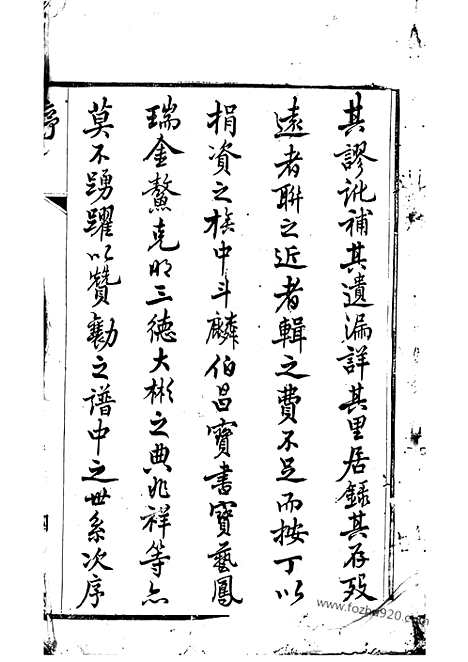 其謬訛補其遺漏詳其里居錄其存歿
遠者聯之近者輯之費不足而按丁以
捐資之族中斗麟伯昌寶書寶藝鳳
瑞金鰲克明三德大彬之典兆祥等亦
莫不踴躍以贊勷之譜中之世系次序
序
四
www.fozhu920.com